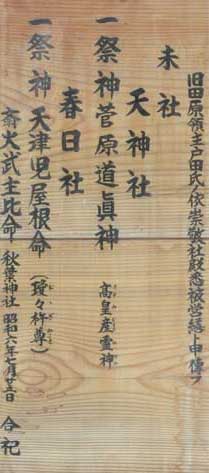 旧田原領主戸田氏ノ依崇敬社殿悉被営繕ト申傳フ
末社
天神社
一祭神菅原道眞神
高皇産霊神
春日社
一祭神天津児屋根命
(瓊々杵尊)
斎火武主比命 秋葉神社 昭和六年七月廿五日 合祀